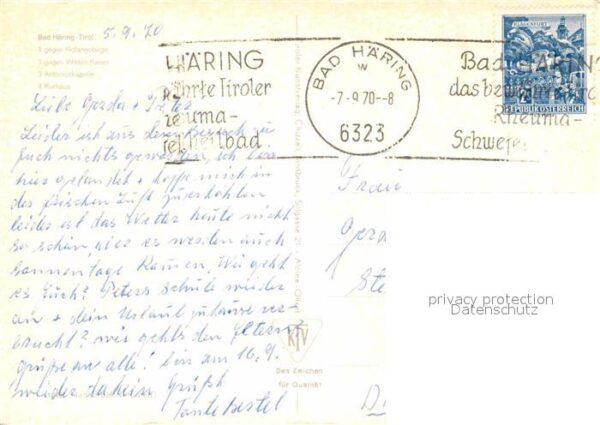 Bad Häring - Tirol
5.9.70
1 gegen Rofangebirge
2 gegen Wilden Kaiser
3 Antoniuskapelle
4 Kurhaus
HÄRING
ührte Tiroler
heuma-
fel-heilbad
BAD HÄRING
W
-7.-9 70--8
6323
Bad HÄRING
das bewährte
Rheuma-
Schwefel
KLAGENFURT
REPUBLIK ÖSTERREICH
Liebe Gerda + Peter
Leider ist aus dem Besuch zu
Euch nichts geworden, ich bin
hier gelandet + hoffe mich in
der frischen Luft zu erholen
leider ist das Wetter heute nicht
so schön, aber es werden auch
Sonnentage kommen. Wie geht
es Euch? Peters Schule wieder
an + dein Urlaub zuhause ver-
braucht? wie gehts den Eltern
grüße an alle! bin am 16.9.
wieder daheim Grüßt
Tante
KIV
Das Zeichen
für Qualität
Gerda
Ste
privacy protection
Datenschutz
D